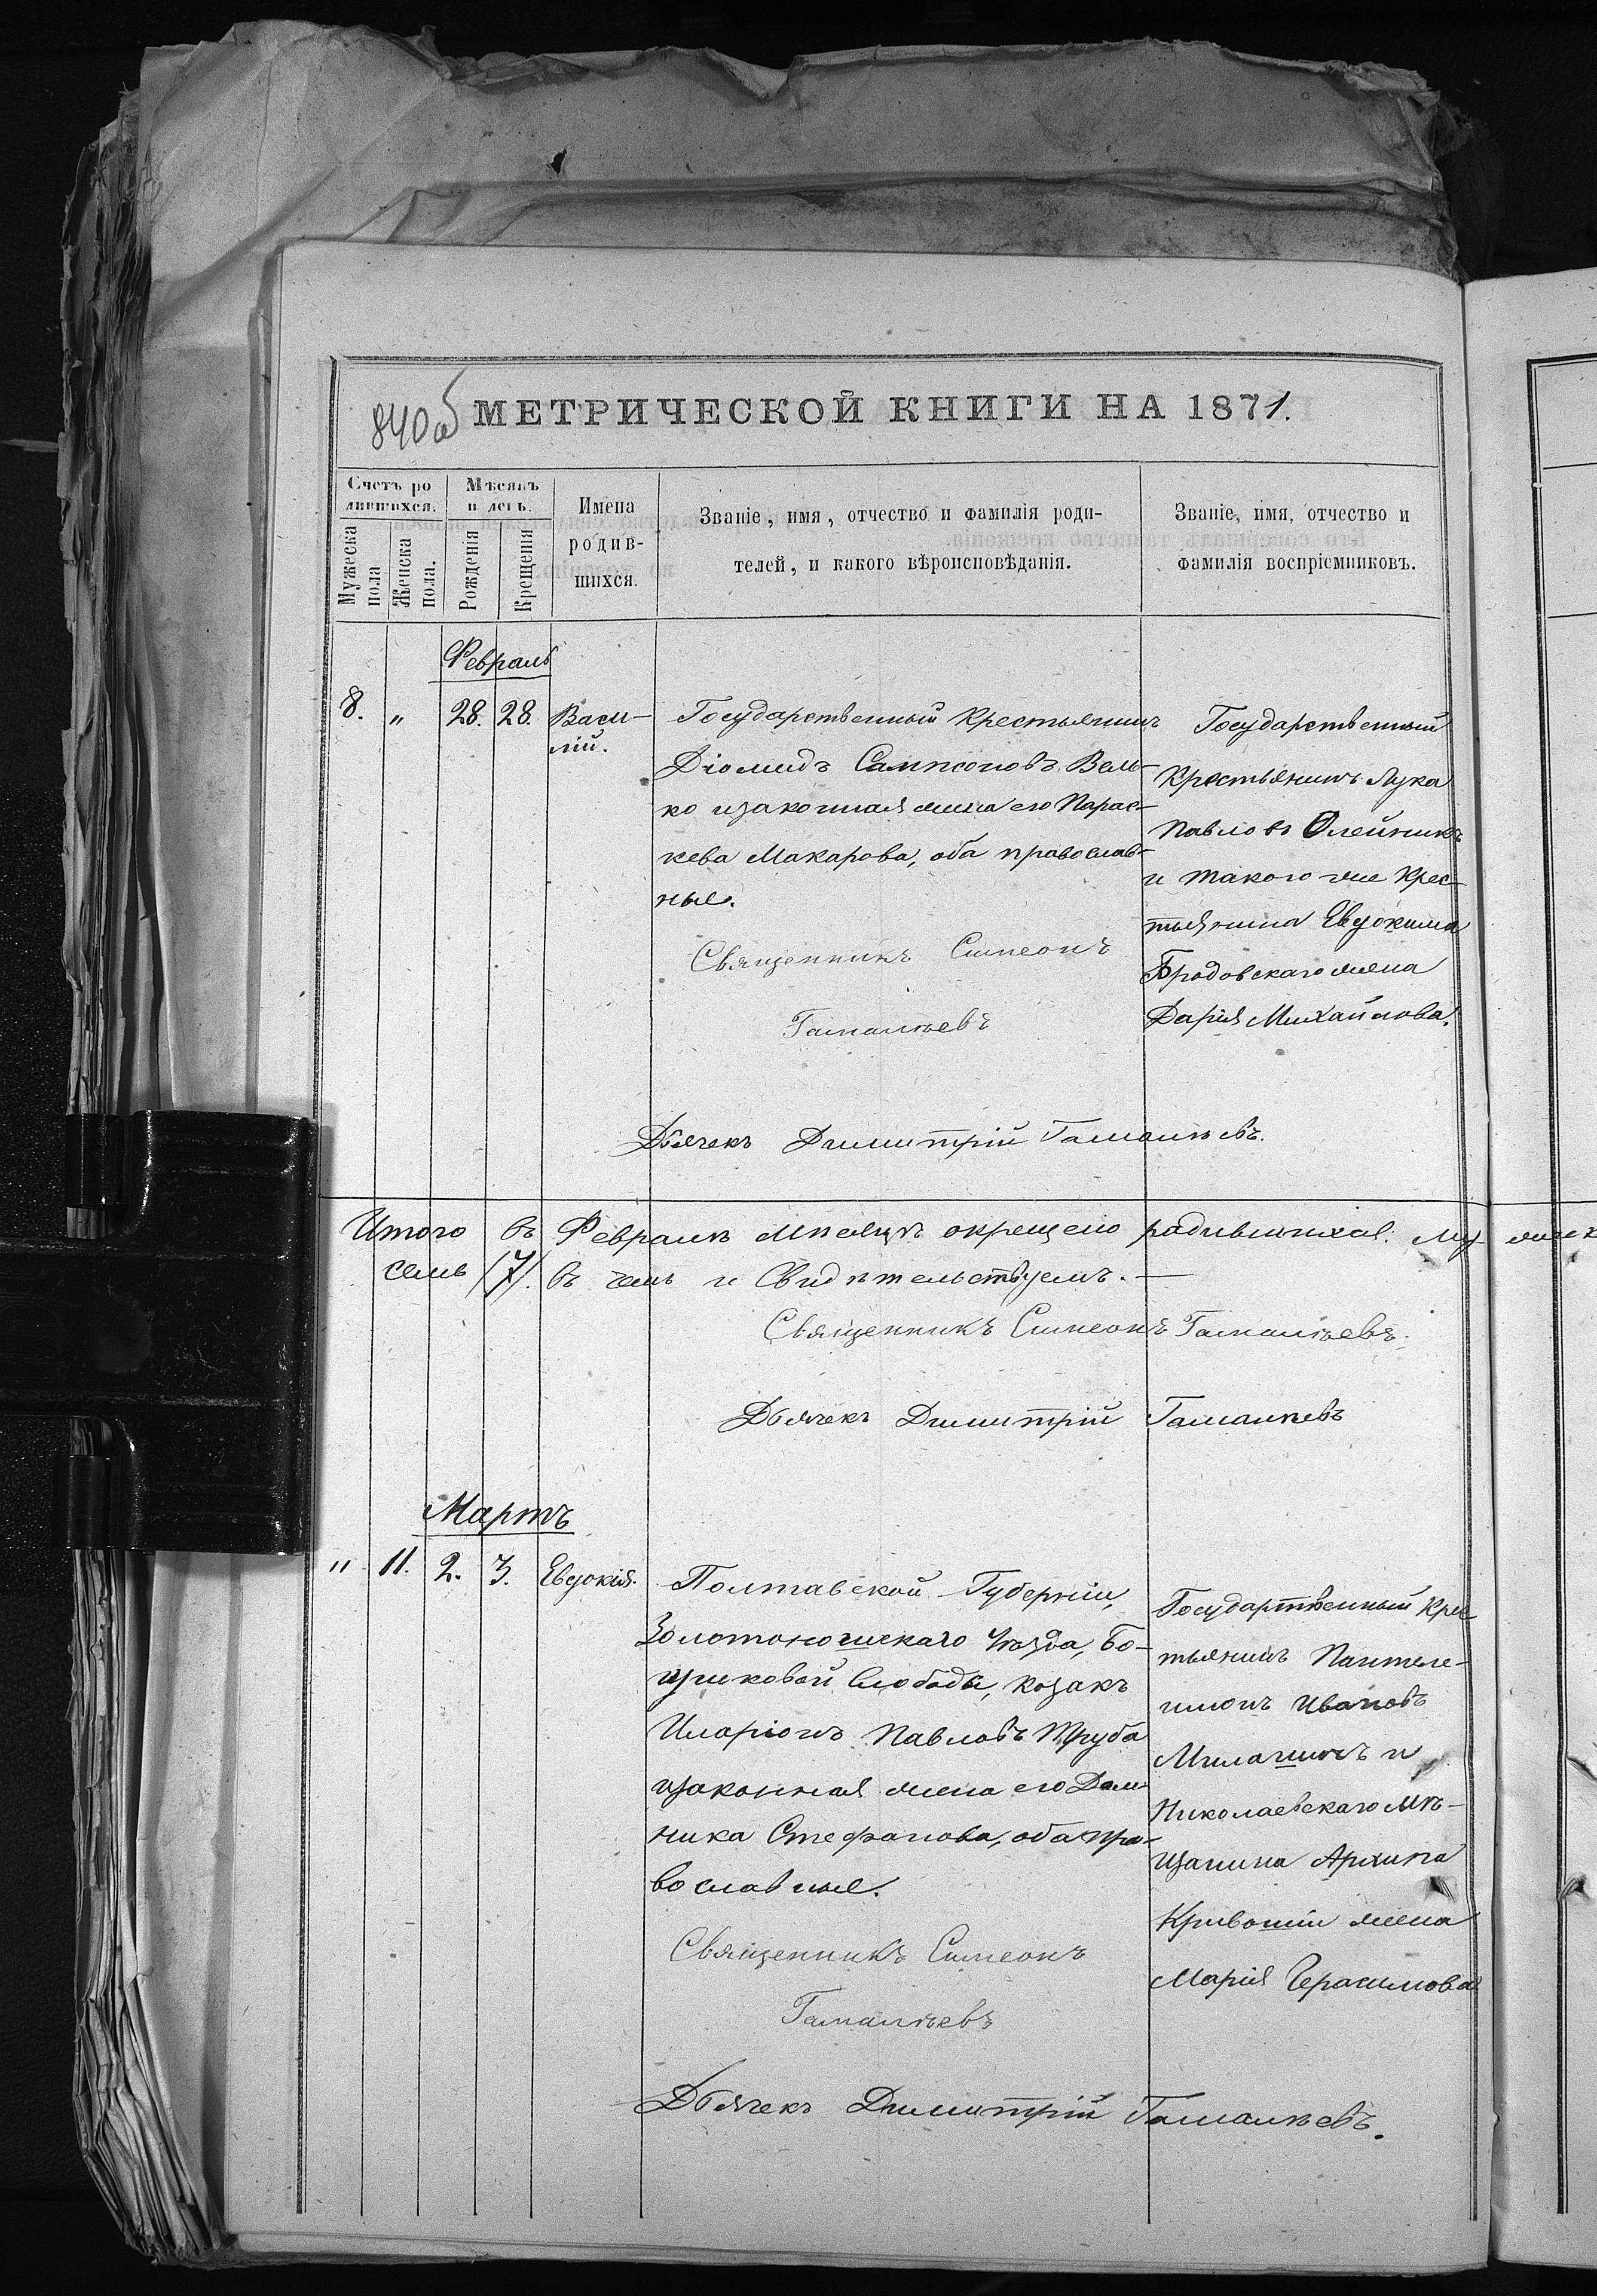 840об
МЕТРИЧЕСКОЙ КНИГИ НА 1871.
Счетъ ро
дившихся.
Мужеска
пола
Женска
пола.
Мѣсяцъ
и день.
Рожденія
Крещенія
Имена
родив-
шихся.
Званіе, имя, отчество и фамилія роди-
телей, и какого вѣроисповѣданія.
Званіе, имя, отчество и
фамилія воспріемниковъ.
Февраль
8. " 28. 28. Васи-
лій.
Государственный Крестьянинъ
Діомидъ Сампсоновъ Вель-
ко изаконная жена его Парас-
кева Макарова, оба православ-
ные.
Священникъ Симеонъ
Гамалѣевъ
Государственный
Крестьянинъ Лука
Павловъ Олейникъ
и такого же Крес-
тьянина Евдокима
Бродовскаго жена
Дарія Михайлова.
Дьячекъ Димитрій Гамалѣевъ.
Итого въ Февралѣ Мѣсяцѣ окрещено родившихся: Му
семь /7/. въ чемъ и Свидѣтельствуемъ. —
Священникъ Симеонъ Гамалѣевъ.
Дьячекъ Димитрій Гамалѣевъ
Мартъ
" 11. 2. 3. Евдокія.
Полтавской Губерніи,
Золотоношскаго Уѣзда, Бо-
гушковой Слободы, козакъ
Иларіонъ Павловъ Труба
изаконная жена его Дом-
ника Стефанова, оба пра-
вославные.
Священникъ Симеонъ
Гамалѣевъ
Государственный Крес
тьянинъ Пантеле-
имонъ Ивановъ
и
Николаевскаго Мѣ-
щанина Архипа
Кривошіи жена
Марія Герасимова
Дьячекъ Димитрій Гамалѣевъ.